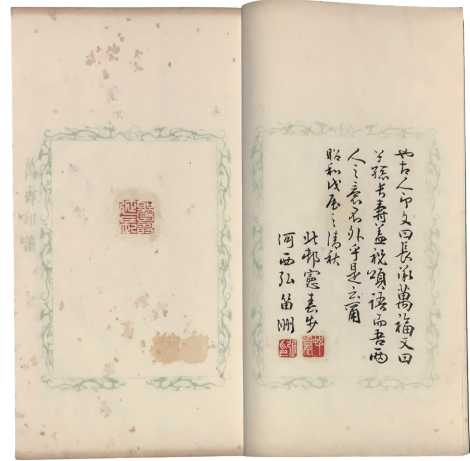 也古人印文曰長承萬福又曰
子孫長壽蓋祝頌語而吾兩
人之意不外乎是云爾
昭和戊辰之清秋
北邨憲春步
河西弘笛洲
萬壽印譜